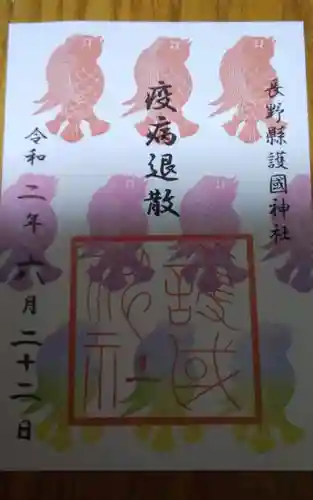 長野縣護國神社
疫病退散
令和二年六月二十二日
護国
神社